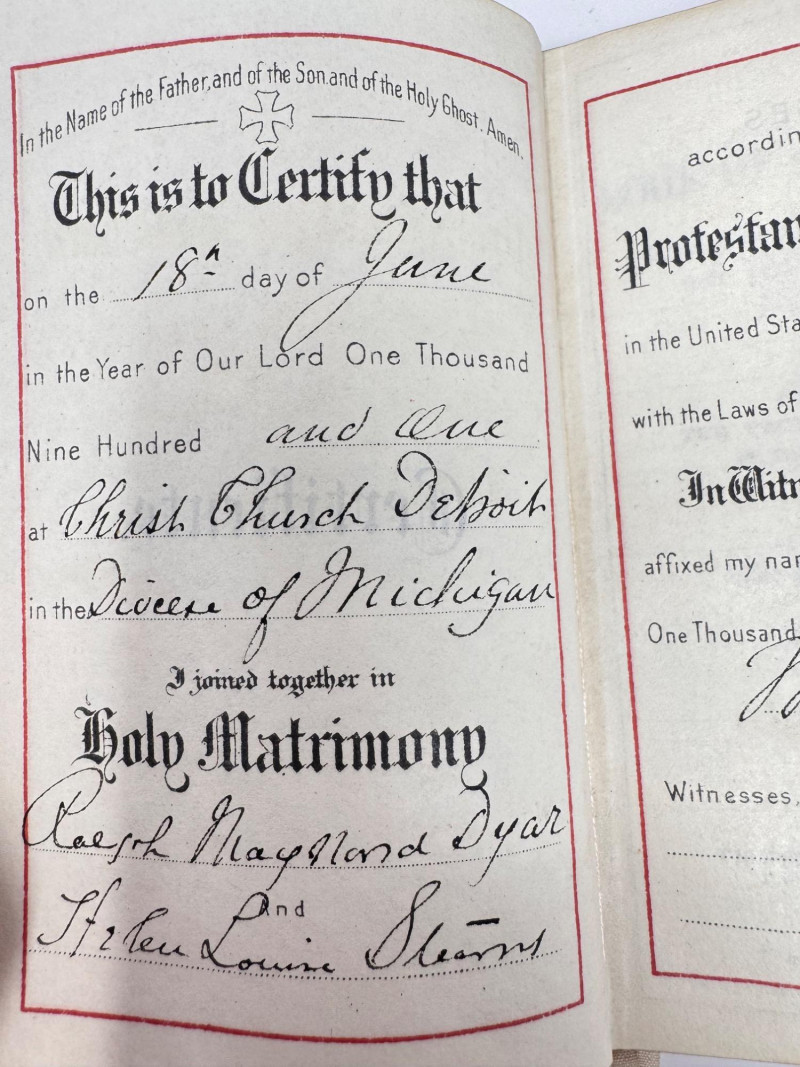 In the Name of the Father, and of the Son, and of the Holy Ghost. Amen.
This is to Certify that
on the 18th day of June
in the Year of Our Lord One Thousand
Nine Hundred and One
at Christ Church Detroit
in the Diocese of Michigan
I joined together in
Holy Matrimony
Ralph Maynard Dyar
And
Helen Louise Stearns
accordin
Protestan
in the United Sta
with the Laws of
In Witn
affixed my nam
One Thousand
Witnesses,